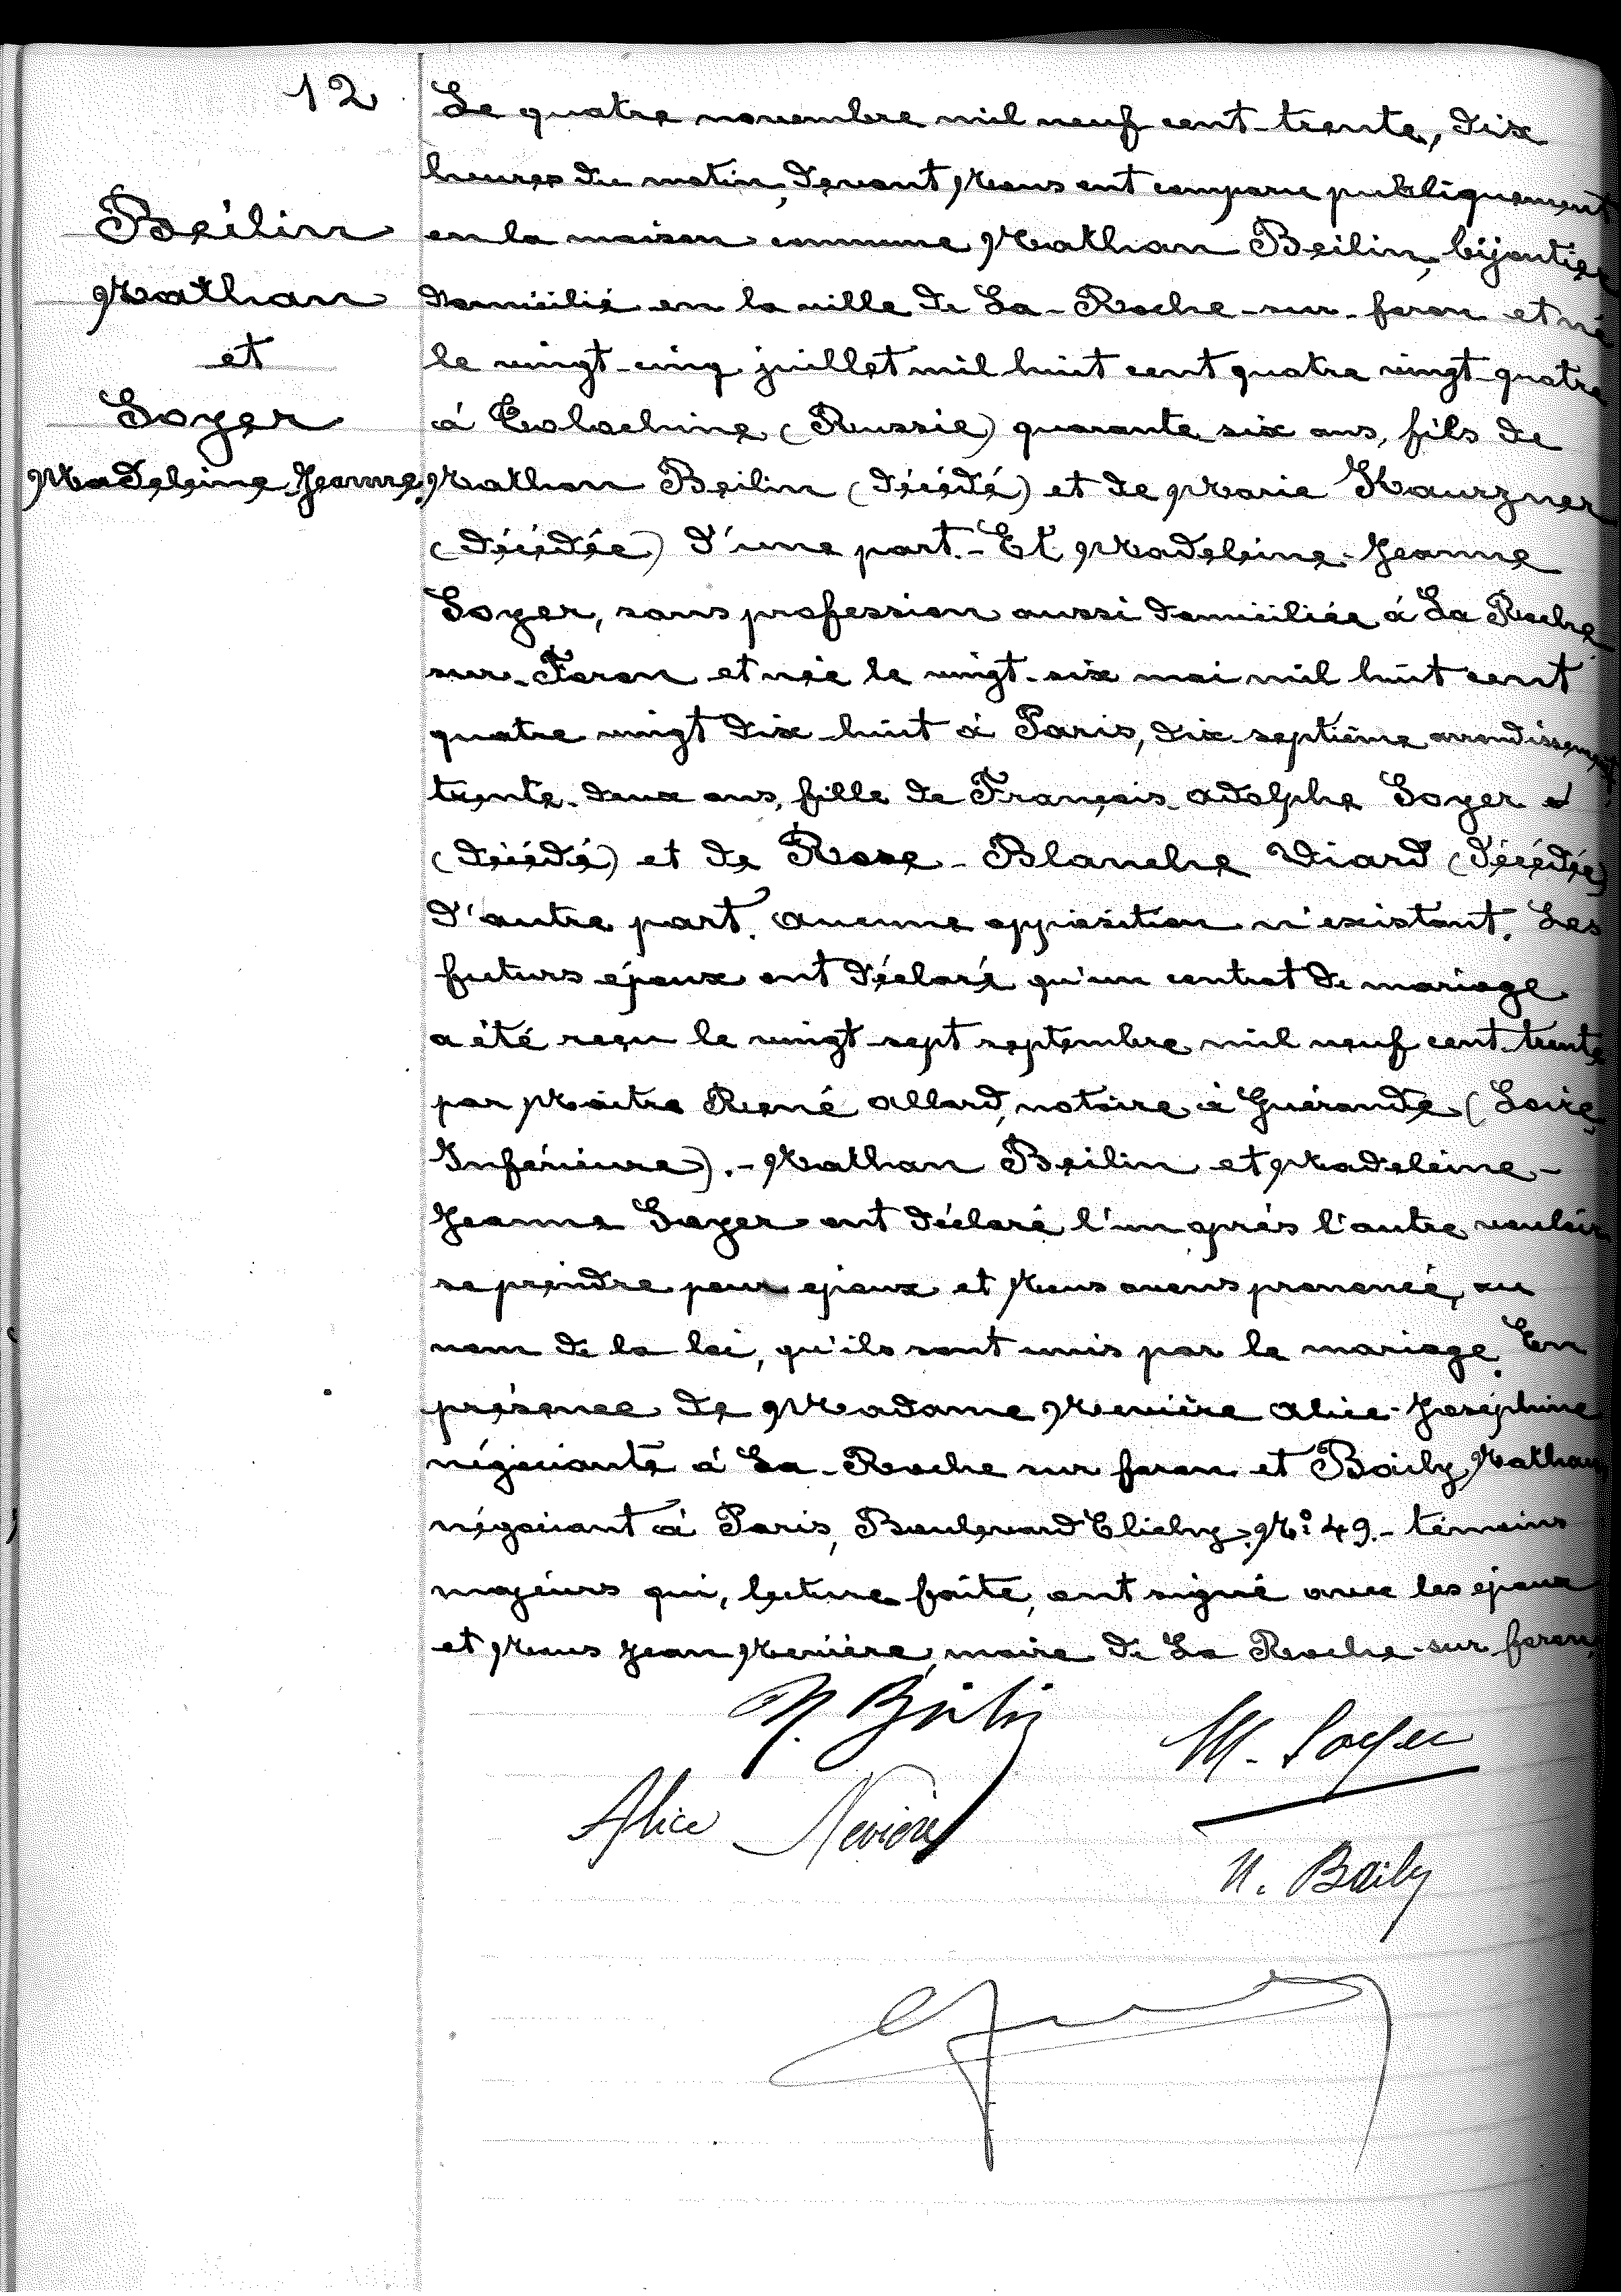 12
Beilin
Nathan
et
Soyer
Madeleine-Jeanne.
Le quatre novembre mil neuf cent trente, dix
heures du matin, devant Nous ont comparu publiquement
en la maison commune Nathan Beilin, bijoutier
domicilié en la ville de La-Roche-sur-foron et né
le vingt-cinq juillet mil huit cent quatre vingt-quatre
à Tolochine (Russie) quarante six ans, fils de
Nathan Beilin (décédé) et de Marie Kaurzner
(décédée) d'une part.- Et Madeleine-Jeanne
Soyer, sans profession aussi domiciliée à La Roche
sur-Foron et née le vingt-six mai mil huit cent
quatre vingt dix-huit à Paris, dix-septième arrondissement,
trente-deux ans, fille de François Adolphe Soyer
(décédé) et de Rose-Blanche Viard (décédée)
d'autre part. Aucune opposition n'existant. Les
futurs époux ont déclaré qu'un contrat de mariage
a été reçu le vingt-sept septembre mil neuf cent-trente
par Maître René Allard, notaire à Guérande (Loire
Inférieure).- Nathan Beilin et Madeleine-
Jeanne Soyer ont déclaré l'un après l'autre vouloir
se prendre pour époux et Nous avons prononcé, au
nom de la loi, qu'ils sont unis par le mariage. En
présence de Madame Nevière Alice-Joséphine
négociante à La-Roche sur foron et Baily Nathan
négociant à Paris, Boulevard Clichy N° 49.- témoins
majeurs qui, lecture faite, ont signé avec les époux
et Nous Jean Nevière, maire de La Roche-sur foron.
N. Beilin
M. Soyer
Alice Nevière
N. Baily